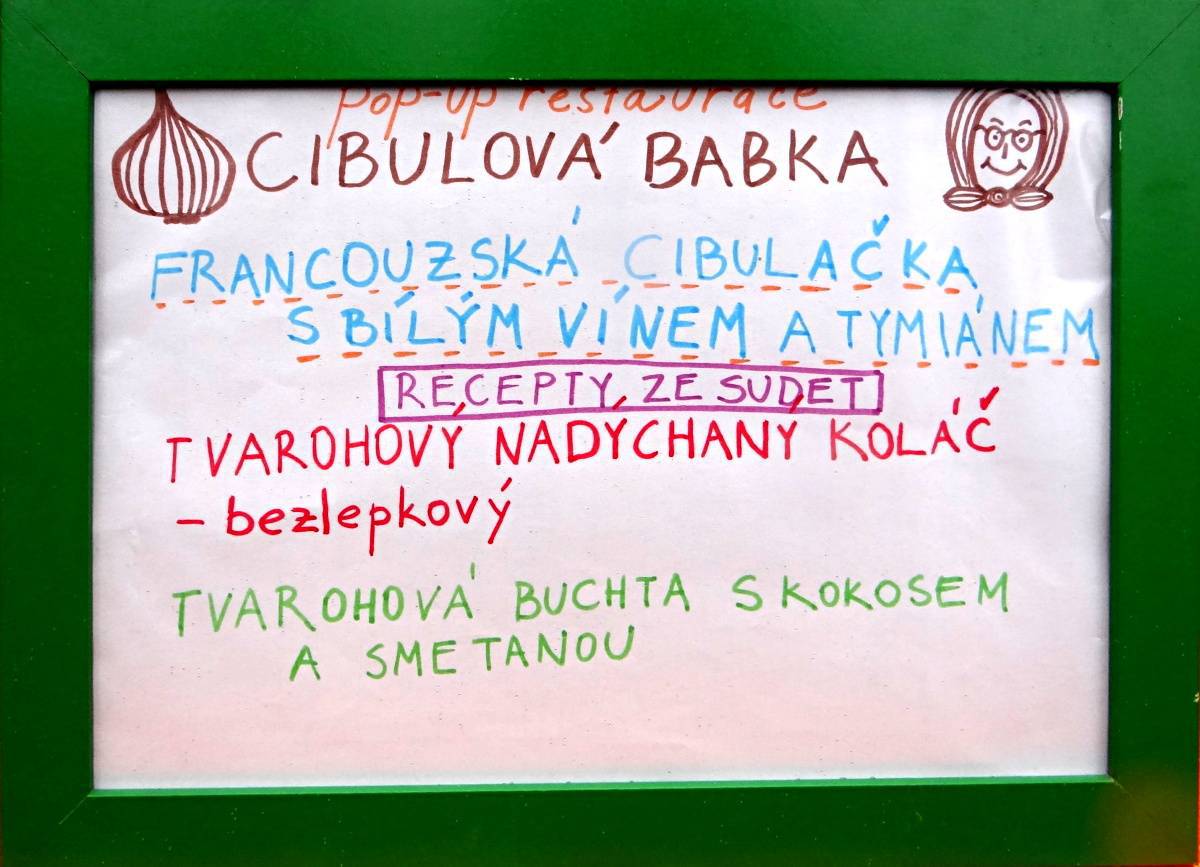 pop-up restaurace
CIBULOVÁ BABKA
FRANCOUZSKÁ CIBULAČKA
S BÍLÝM VÍNEM A TYMIÁNEM
RECEPTY ZE SUDET
TVAROHOVÝ NADÝCHANÝ KOLÁČ
- bezlepkový
TVAROHOVÁ BUCHTA S KOKOSEM
A SMETANOU